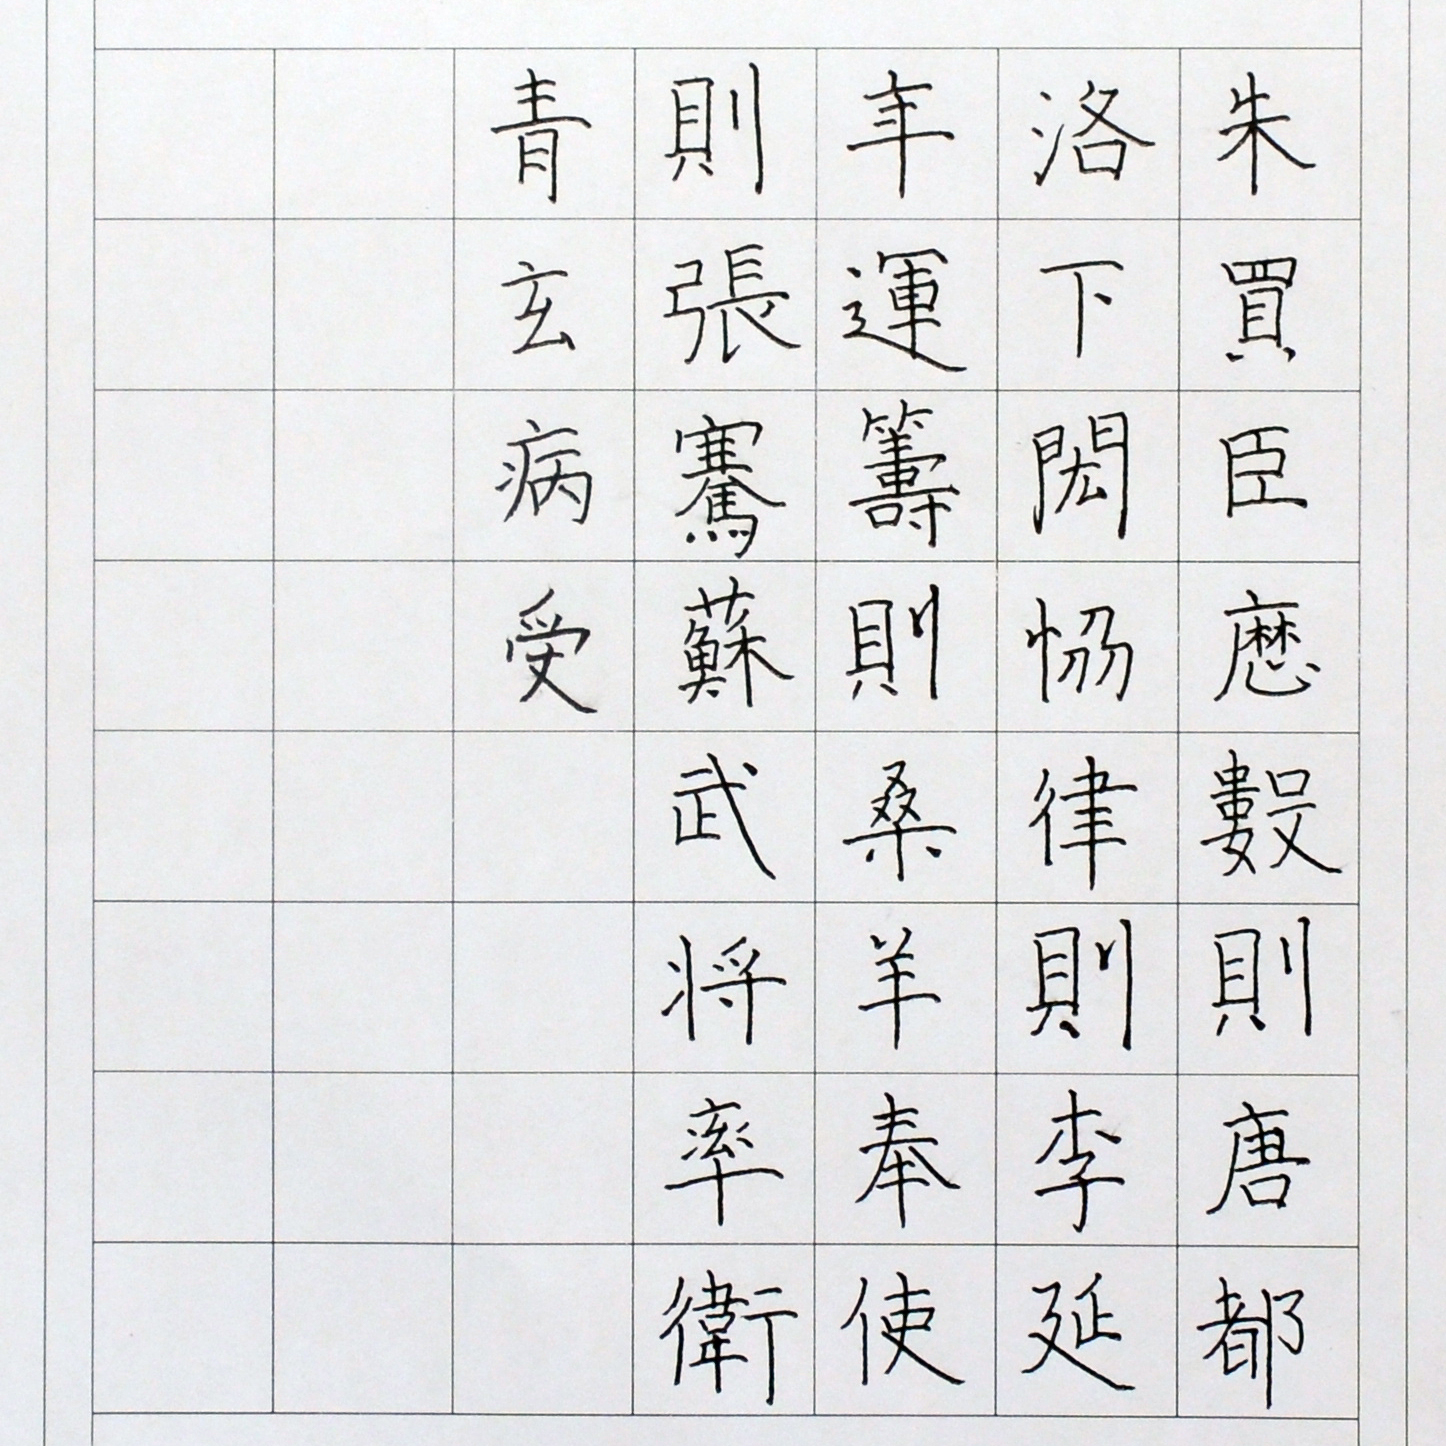 朱買臣厯數則唐都
洛下閎恊律則李延
年運籌則桑羊奉使
則張騫蘇武将率衛
青玄病受